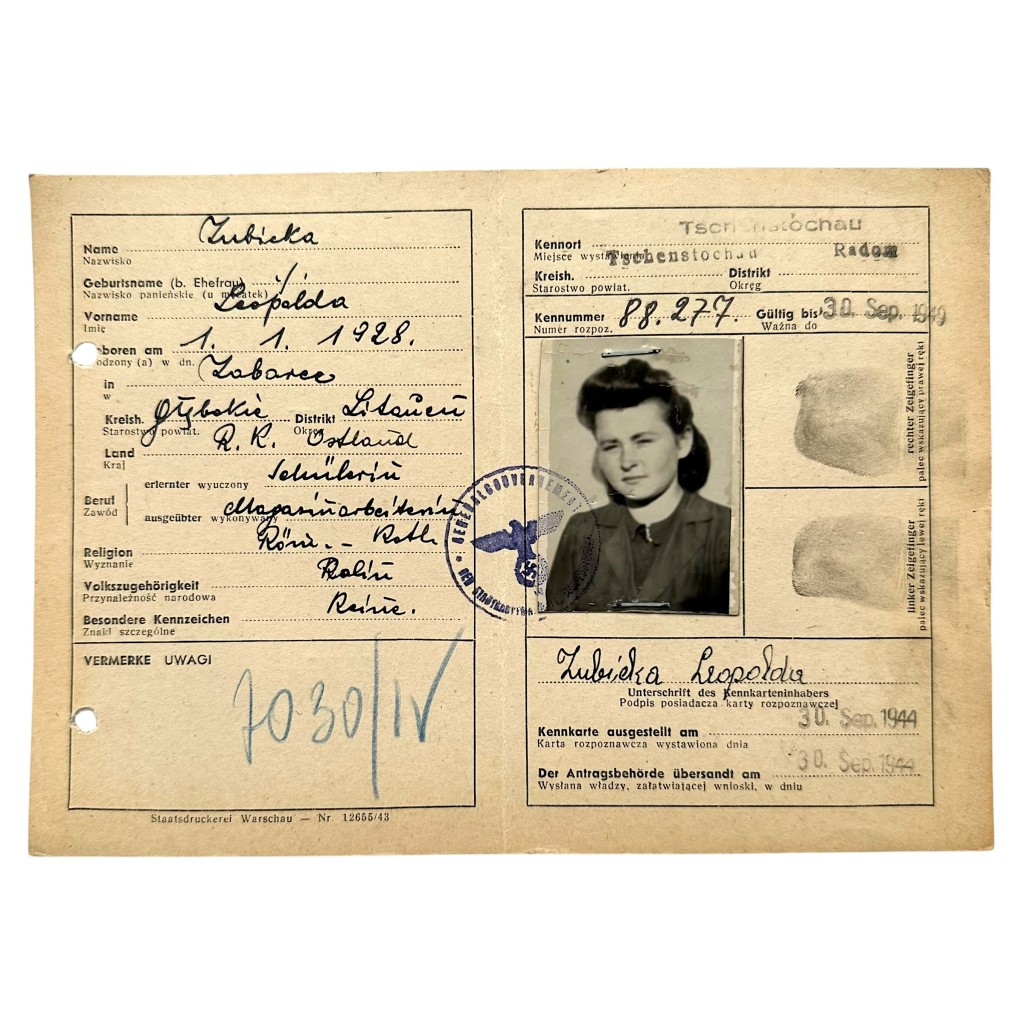 Name Zubicka
Nazwisko
Geburtsname (b. Ehefrau)
Nazwisko panieńskie (u mężatek)
Vorname Leopolda
Imię
Geboren am 1. 1. 1928.
Urodzony (a) w dn.
in Zabarce
w
Kreish. Głębokie Distrikt Litauen
Starostwo powiat. Okręg
Land R. K. Ostland
Kraj
Beruf erlernter wyuczony Schülerin
Zawód ausgeübter wykonywany Magazinarbeiterin
Religion Röm. - Kath.
Wyznanie
Volkszugehörigkeit Polin
Przynależność narodowa
Besondere Kennzeichen Keine.
Znaki szczególne
VERMERKE UWAGI
7030/IV
Staatsdruckerei Warschau — Nr. 12655/43
Tschenstochau
Kennort
Miejsce wystawienia Tschenstochau Radom
Kreish. Distrikt
Starostwo powiat. Okręg
Kennummer 88.277. Gültig bis 30. Sep. 1949
Numer rozpoz. Ważna do
rechter Zeigefinger
palec wskazujący prawej ręki
linker Zeigefinger
palec wskazujący lewej ręki
GENERALGOUVERNEMENT
Zubicka Leopolda
Unterschrift des Kennkarteninhabers
Podpis posiadacza karty rozpoznawczej
Kennkarte ausgestellt am 30. Sep. 1944
Karta rozpoznawcza wystawiona dnia
Der Antragsbehörde übersandt am 30. Sep. 1944
Wysłana władzy, załatwiającej wnioski, w dniu